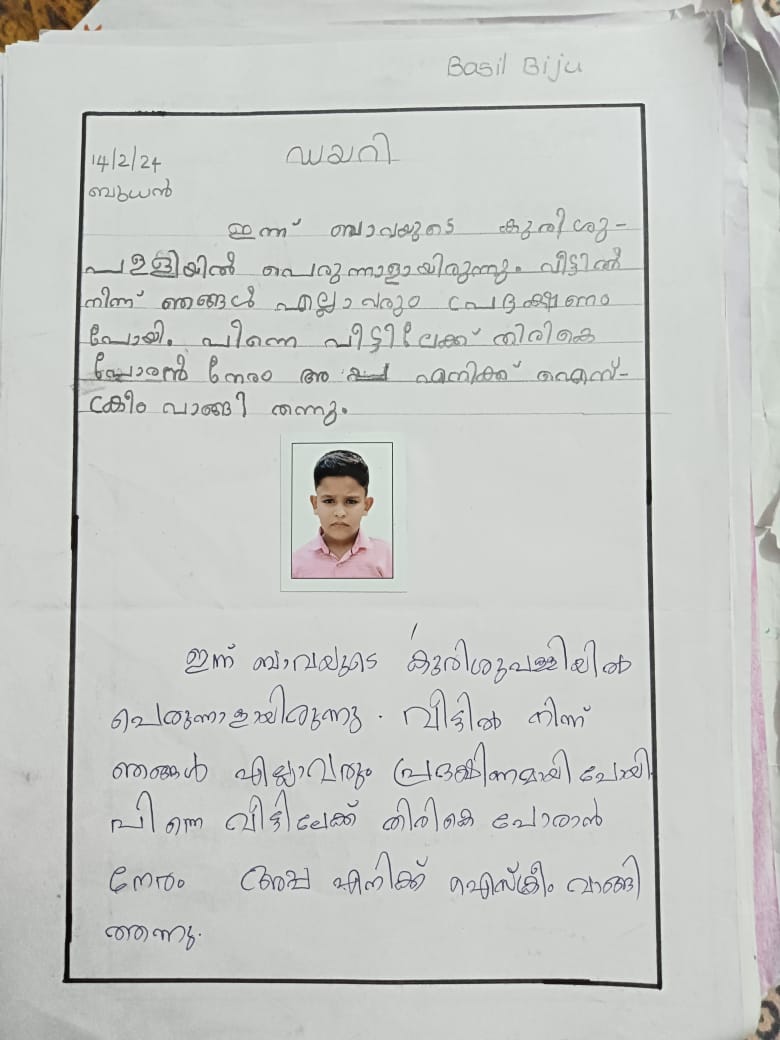 Basil Biju
ഡയറി
14/2/24
ബുധൻ
ഇന്ന് ബാവയുടെ കുരിശു-
പള്ളിയിൽ പെരുന്നാളായിരുന്നു. വീട്ടിൽ
നിന്ന് ഞങ്ങൾ എല്ലാവരും പ്രദക്ഷണം
പോയി. പിന്നെ വീട്ടിലേക്ക് തിരികെ
പോരൻ നേരം അ എനിക്ക് ഐസ്-
ക്രീം വാങ്ങി തന്നു.
ഇന്ന് ബാവയുടെ കുരിശുപള്ളിയിൽ
പെരുന്നാളായിരുന്നു. വീട്ടിൽ നിന്ന്
ഞങ്ങൾ എല്ലാവരും പ്രദക്ഷിണമായി പോയി
പിന്നെ വീട്ടിലേക്ക് തിരികെ പോരാൻ
നേരം അപ്പ എനിക്ക് ഐസ്ക്രീം വാങ്ങി
തന്നു.